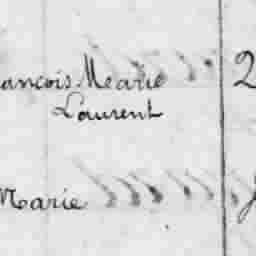 ancois Mearie 2
Laurent
Marie